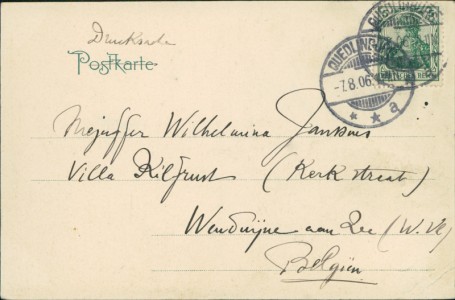 Drucksache
Postkarte
QUEDLINBURG
-7.8.06.
* * a
Mejuffer Wilhelmina Janssens
Villa (Kerkstraat)
Wenduijne aan Zee (W. Vl)
Belgien.